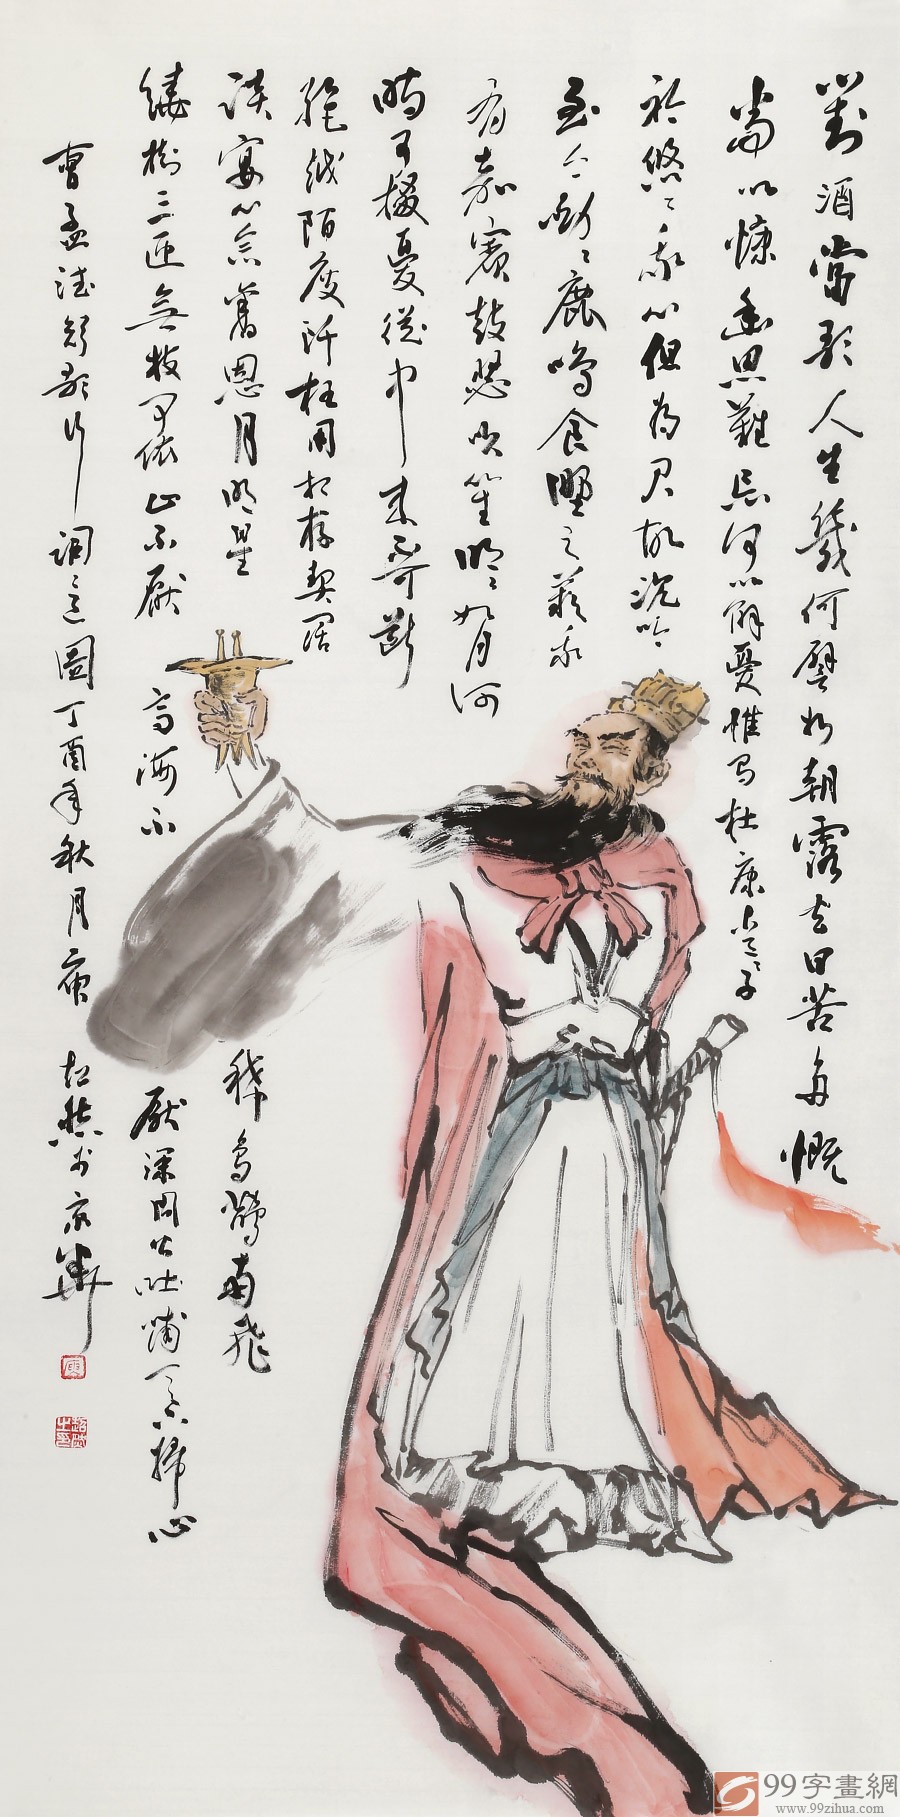 對酒當歌人生幾何譬如朝露去日苦多慨
當以慷幽思難忘何以解憂惟有杜康青々子
衿悠々我心但為君故沉吟
至今呦々鹿鳴食野之蘋我
有嘉賓鼓瑟吹笙明々如月何
時可掇憂從中來不可斷
絕越陌度阡枉用相存契闊
談宴心念舊恩月明星
稀烏鵲南飛
繞樹三匝無枝可依山不厭
高海不
厭深周公吐哺天下歸心
曹孟德短歌行詞意圖丁酉年秋月
於京華
99字畫網
www.99zihua.com